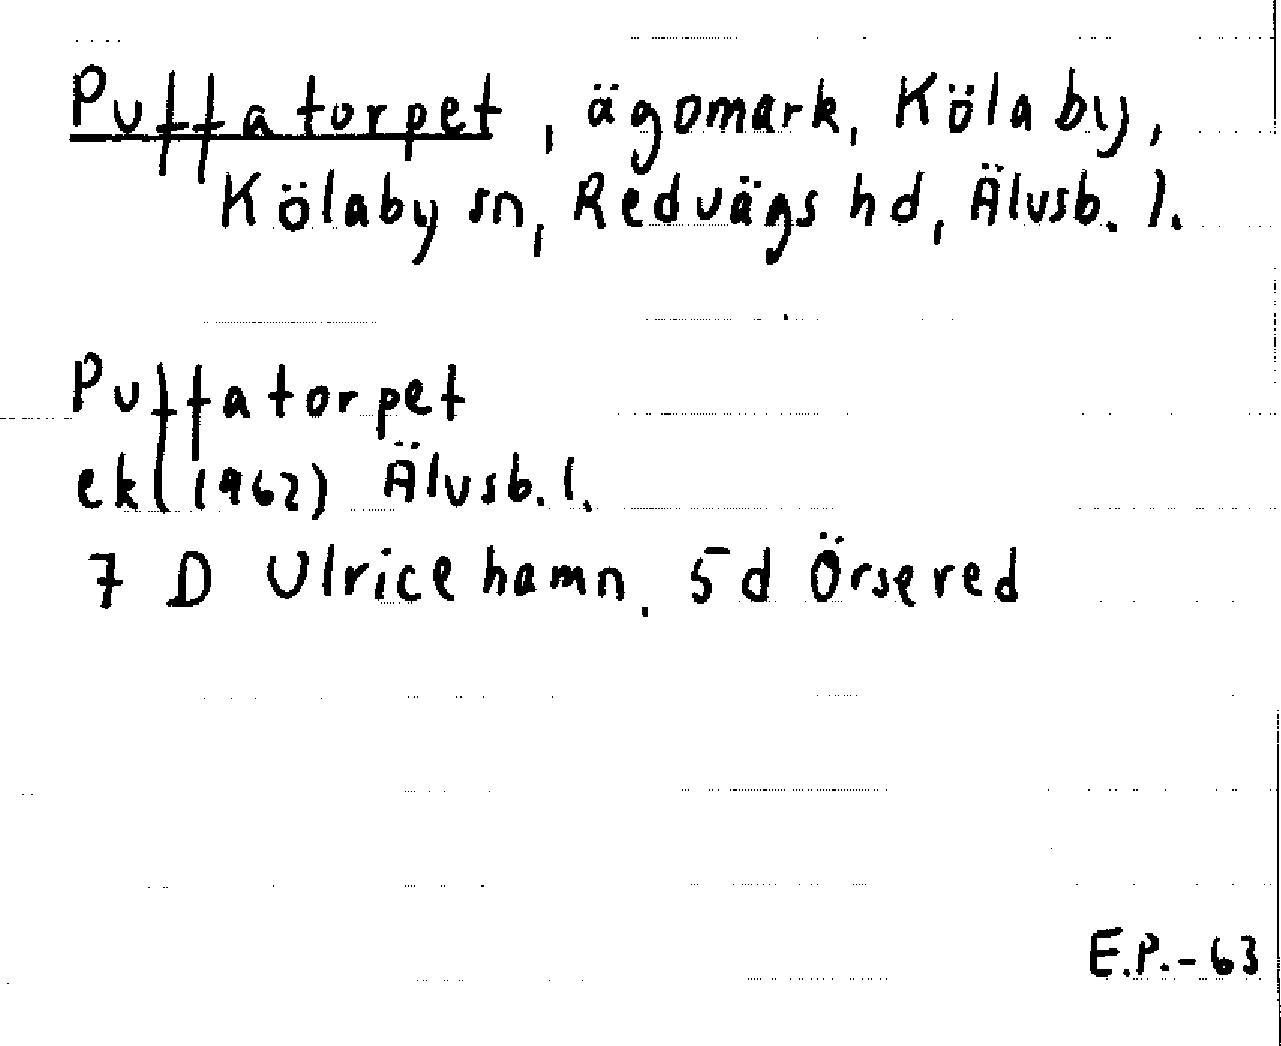 Puffatorpet, ägomark, Kölaby,
Kölaby sn, Redvägs hd, Älvsb. l.
Puffatorpet
ek (1962) Älvsb. l.
7 D Ulricehamn. 5d Örsered
E.P.-63